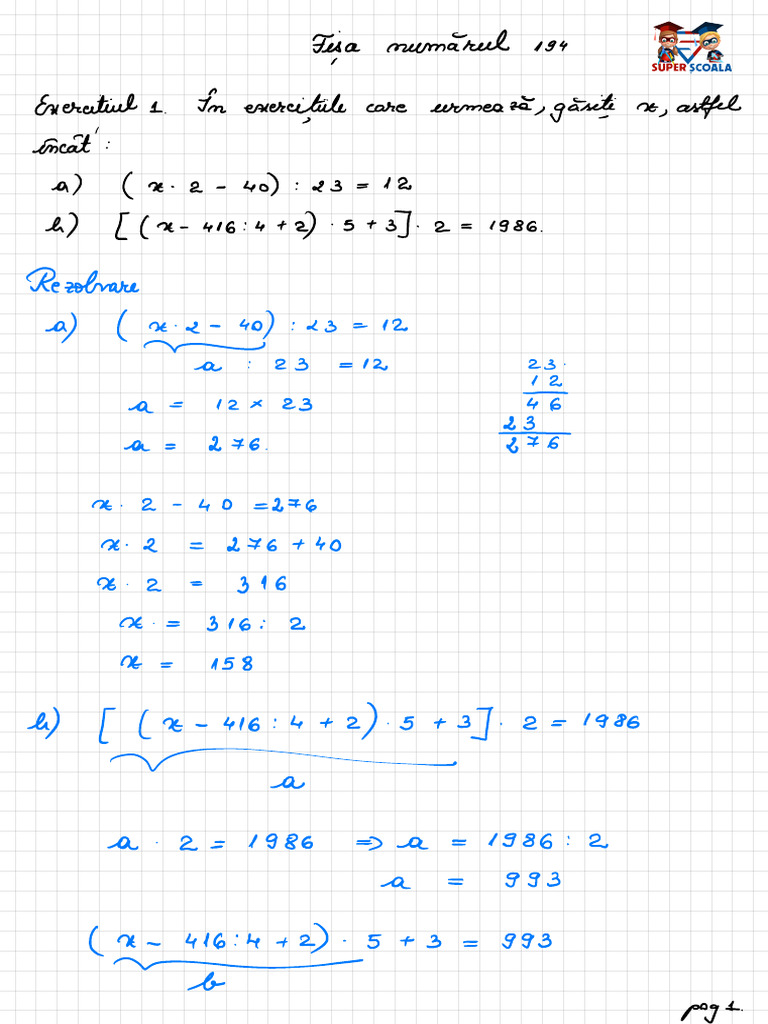 Fișa numărul 194
SUPER ȘCOALA
Exercițiul 1. În exercițiile care urmează, găsiți x, astfel
încât:
a) (x · 2 - 40) : 23 = 12
b) [(x - 416 : 4 + 2) · 5 + 3] · 2 = 1986.
Rezolvare
a) (x · 2 - 40) : 23 = 12
a : 23 = 12
23 ·
12
a = 12 × 23
46
23
a = 276.
276
x · 2 - 40 = 276
x · 2 = 276 + 40
x · 2 = 316
x = 316 : 2
x = 158
b) [(x - 416 : 4 + 2) · 5 + 3] · 2 = 1986
a
a · 2 = 1986 => a = 1986 : 2
a = 993
(x - 416 : 4 + 2) · 5 + 3 = 993
b
pag 1.